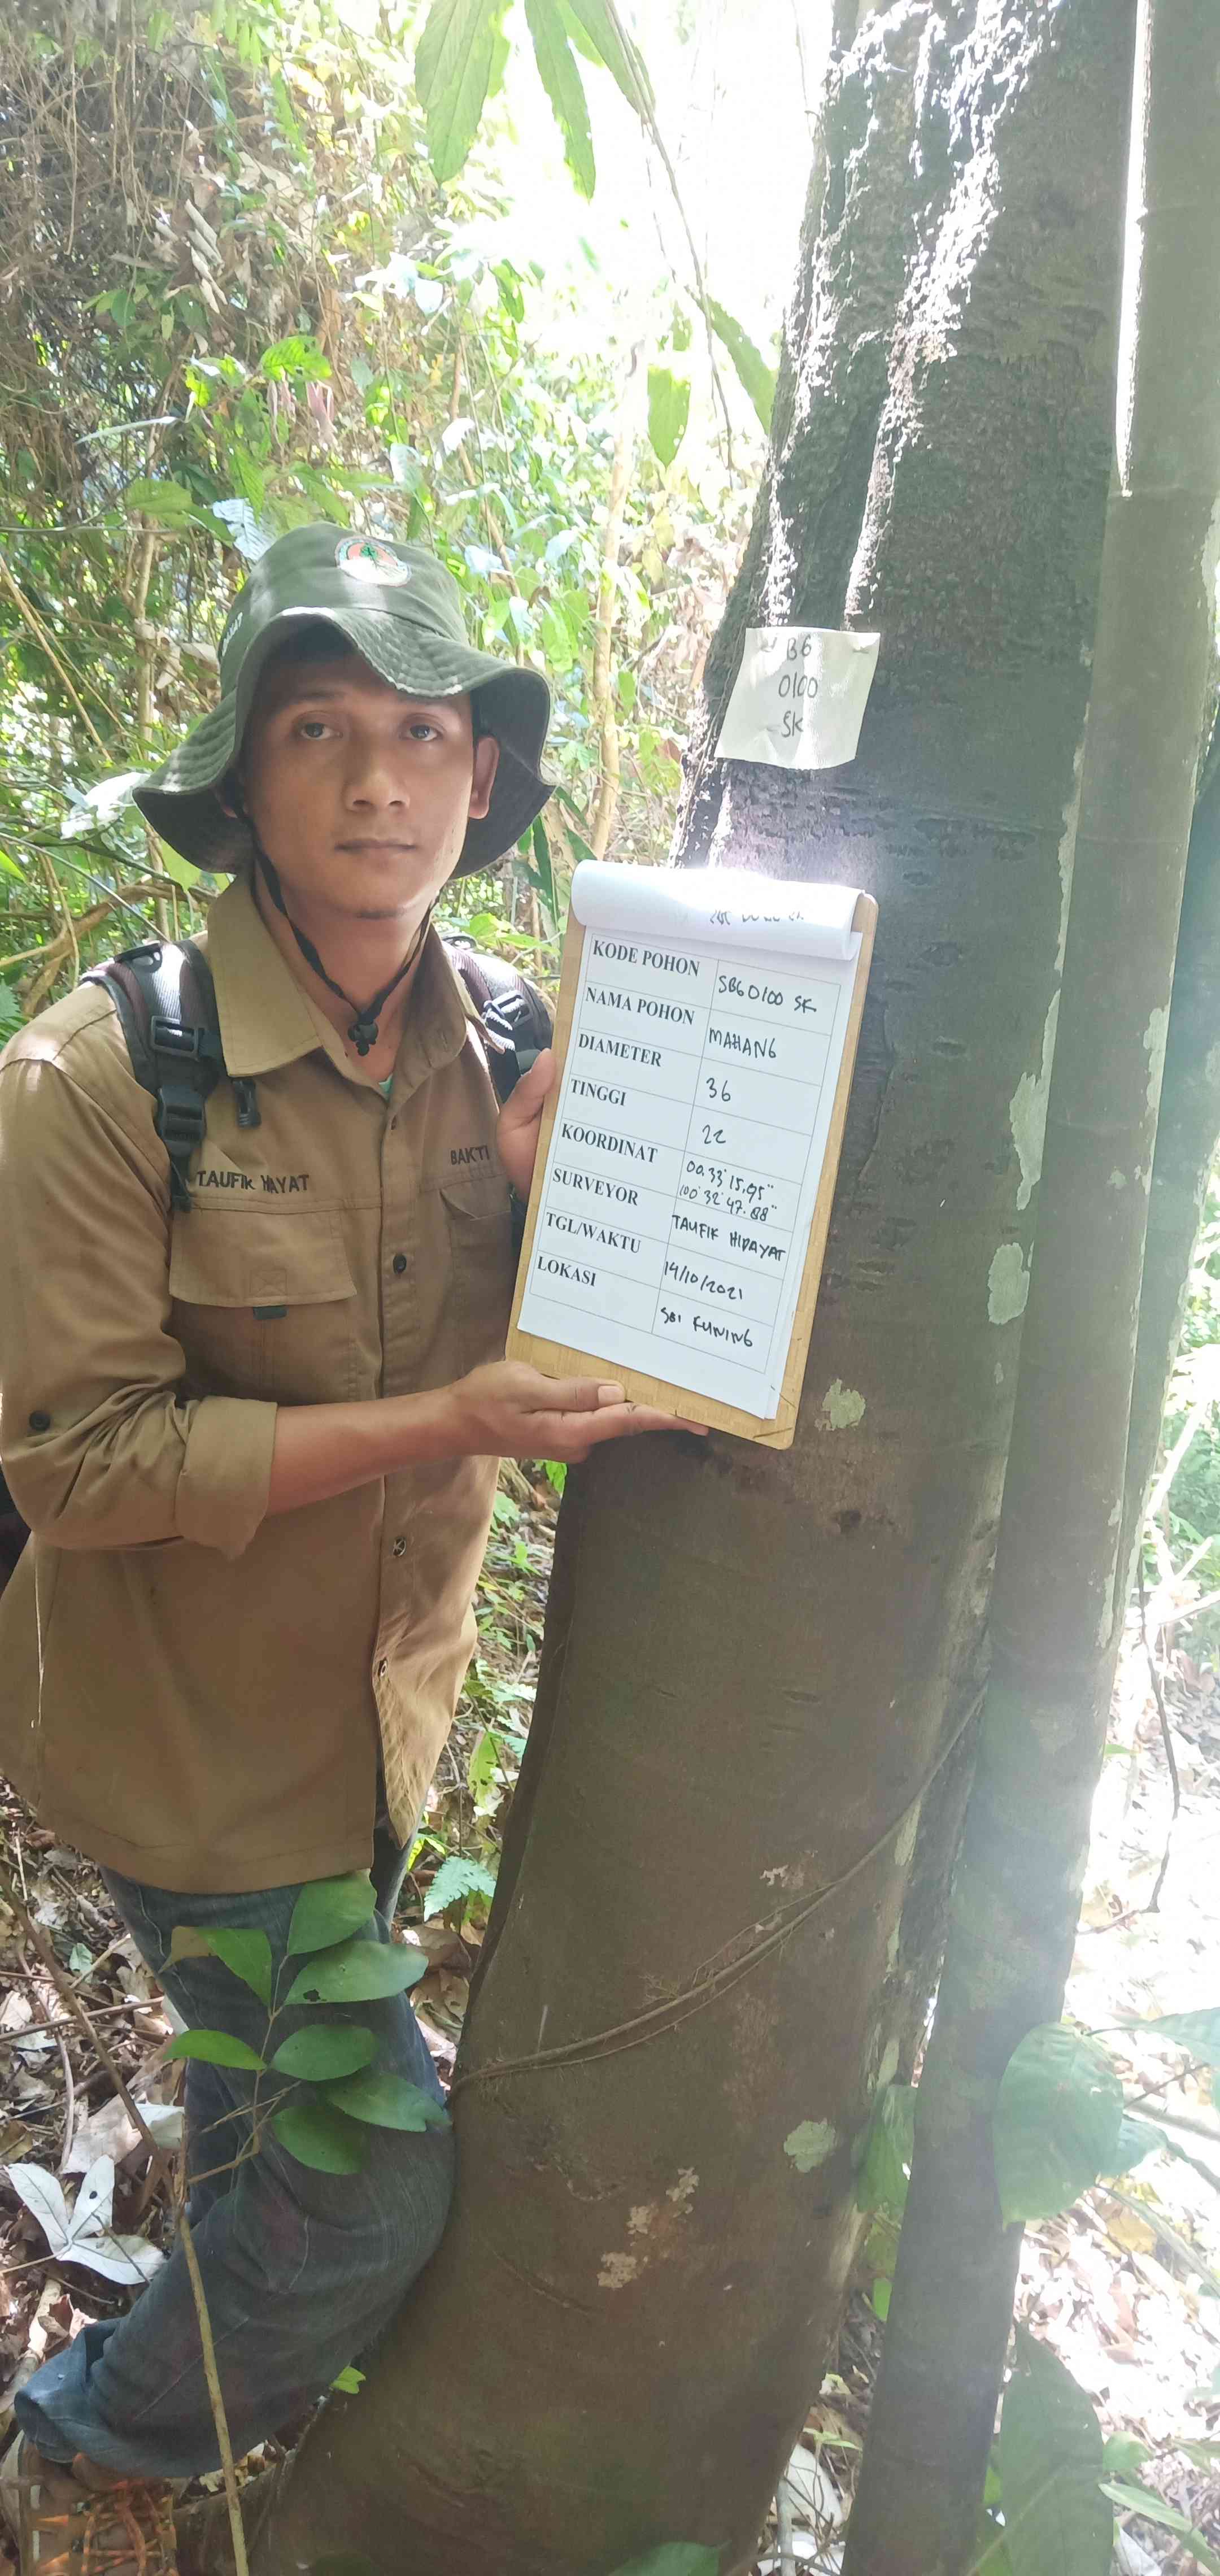 B6
0100
SK
KODE POHON SBG 0100 SK
NAMA POHON MAHANG
DIAMETER 36
TINGGI 22
KOORDINAT 00.33'15.95"
100°32'47.88"
SURVEYOR TAUFIK HIDAYAT
TGL/WAKTU 14/10/2021
LOKASI SEI KUNING
TAUFIK HAYAT
BAKTI